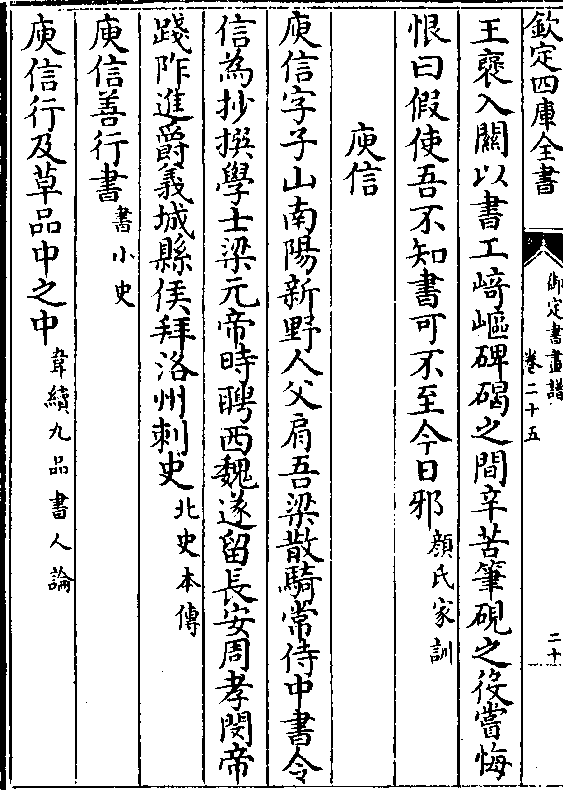 欽定四庫全書
御定書畫譜
卷二十五
二十
王襃入關以書工﨑嶇碑碣之間辛苦筆硯之役嘗悔
恨曰假使吾不知書可不至今日邪顔氏家訓
庾信
庾信字子山南陽新野人父肩吾梁散騎常侍中書令
信為抄撰學士梁元帝時聘西魏遂留長安周孝閔帝
踐阼進爵義城縣侯拜洛州刺史北史本傳
庾信善行書書小史
庾信行及草品中之中韋續九品書人論